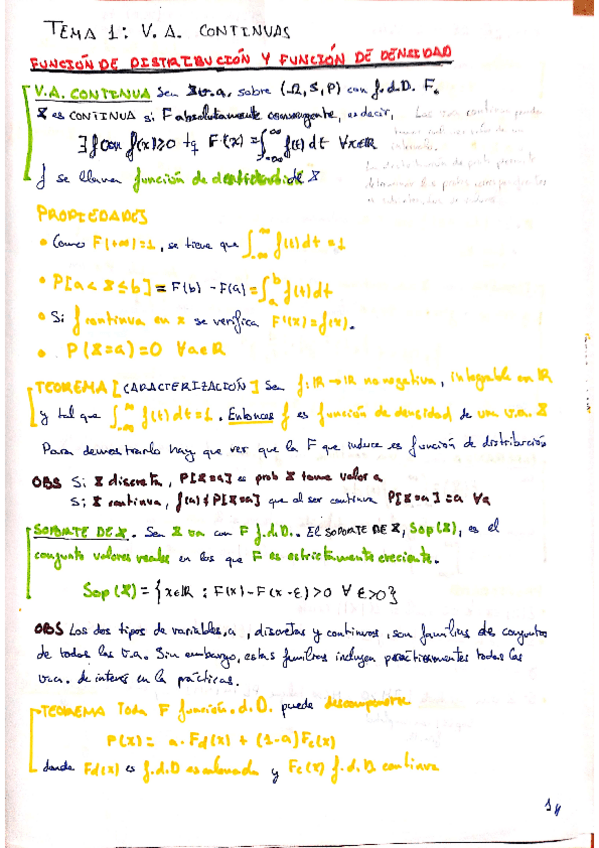 TEMA 1: V. A. CONTINUAS
FUNCIÓN DE DISTRIBUCIÓN Y FUNCIÓN DE DENSIDAD
V.A. CONTINUA Sea X v.a. sobre (Ω, S, P) con f.d.D. F.
X es CONTINUA si F absolutamente convergente, es decir,
∃ f con f(x)≥0 tq F(x) = ∫_{-∞}^{∞} f(t) dt ∀x∈ℝ
f se llama función de densidad de X
PROPIEDADES
• Como F(+∞)=1, se tiene que ∫_{-∞}^{∞} f(t)dt = 1
• P[a < X ≤ b] = F(b) - F(a) = ∫_a^b f(t)dt
• Si f continua en x se verifica F'(x)=f(x).
• P(X=a)=0 ∀a∈ℝ
TEOREMA [CARACTERIZACIÓN] Sea f: ℝ → ℝ no negativa, integrable en ℝ
y tal que ∫_{-∞}^{∞} f(t)dt=1. Entonces f es función de densidad de una v.a. X
Para demostrarlo hay que ver que la F que induce es función de distribución
OBS Si X discreta, P[X=a] es prob X tome valor a
Si X continua, f(a)≠P[X=a] que al ser continua P[X=a]=0 ∀a
SOPORTE DE X. Sea X va con F f.d.D.. El SOPORTE DE X, Sop(X), es el
conjunto valores reales en los que F es estrictamente creciente.
Sop(X) = {x∈ℝ : F(x)-F(x-ε)>0 ∀ ε>0}
OBS Los dos tipos de variables,a, discretas y continuas, son familias de conjuntos
de todas las v.a. Sin embargo, estas familias incluyen prácticamentes todas las
v.a. de interés en la prácticas.
TEOREMA Toda F función.d.D. puede descomponerse
P(x) = a·Fd(x) + (1-a)Fc(x)
donde Fd(x) es f.d.D escalonada y Fc(x) f.d.D. continua